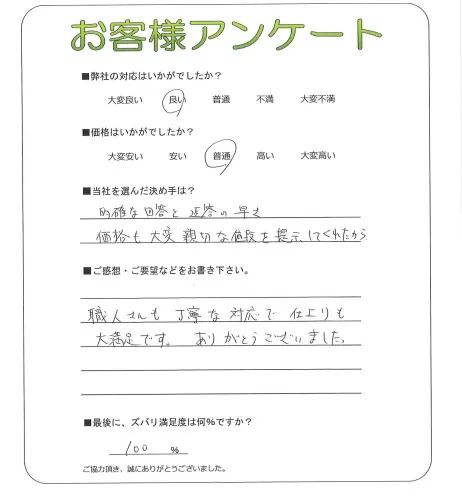 お客様アンケート
■弊社の対応はいかがでしたか?
大変良い 良い 普通 不満 大変不満
■価格はいかがでしたか?
大変安い 安い 普通 高い 大変高い
■当社を選んだ決め手は?
的確な回答と返答の早さ
価格も大変親切な値段を提示してくれたから
■ご感想・ご要望などをお書き下さい。
職人さんも丁寧な対応で仕上りも
大満足です。ありがとうございました。
■最後に、ズバリ満足度は何%ですか?
100 %
ご協力頂き、誠にありがとうございました。